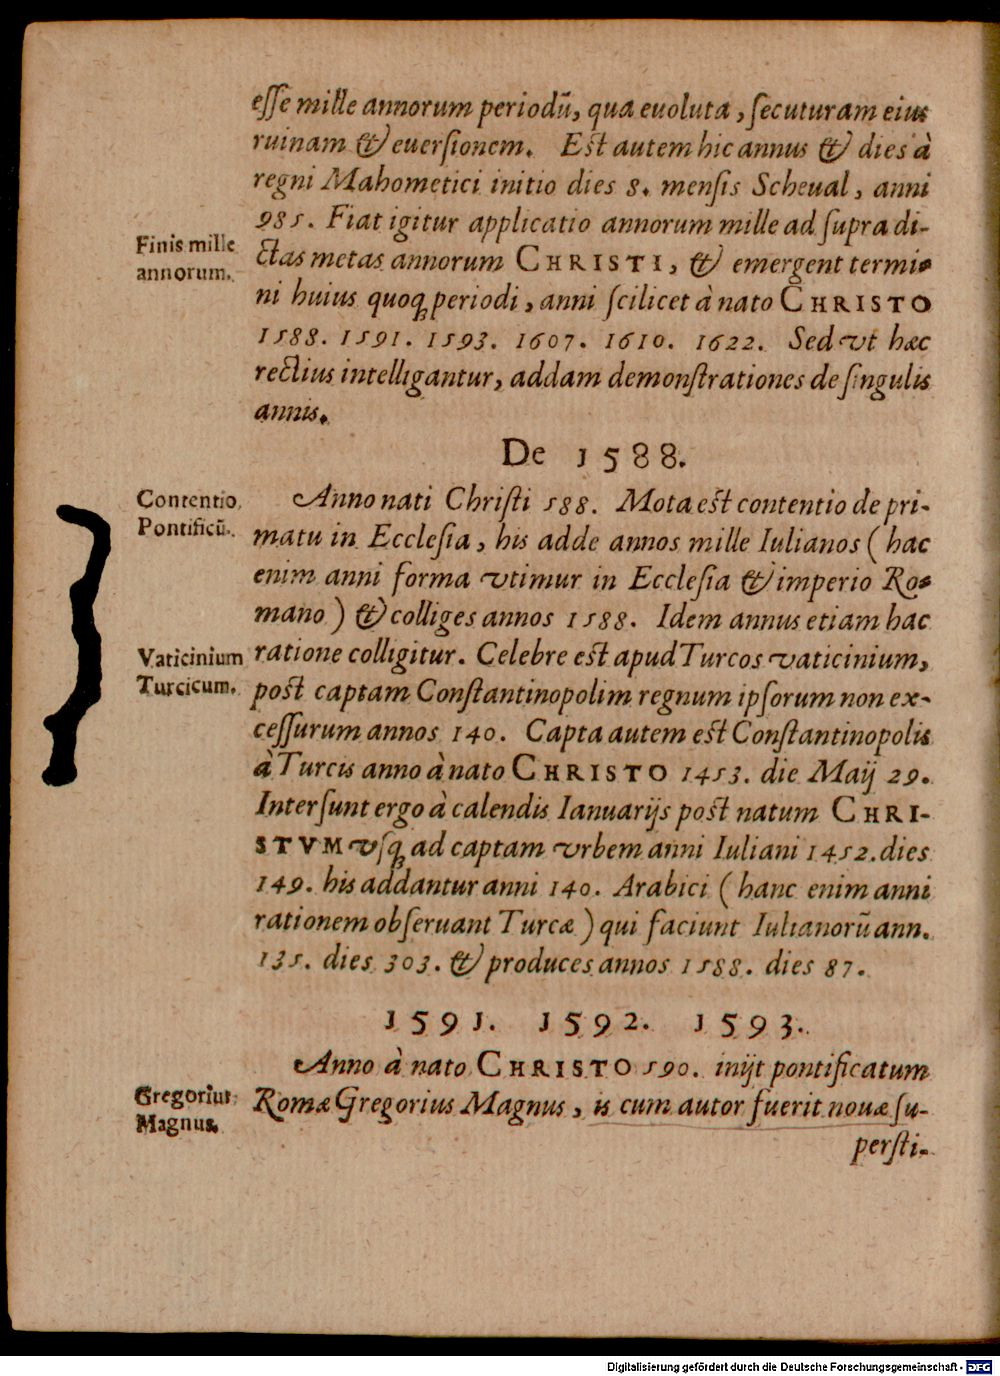 esse mille annorum periodũ, qua euoluta, secuturam eius
ruinam & euersionem. Est autem hic annus & dies à
regni Mahometici initio dies 8. mensis Scheual, anni
985. Fiat igitur applicatio annorum mille ad supra di-
Finis mille
annorum.
ctas metas annorum CHRISTI, & emergent termi-
ni huius quoq; periodi, anni scilicet à nato CHRISTO
1588. 1591. 1593. 1607. 1610. 1622. Sed vt hæc
rectius intelligantur, addam demonstrationes de singulis
annis.
De 1588.
Contentio
Pontificũ.
Anno nati Christi 588. Mota est contentio de pri-
matu in Ecclesia, his adde annos mille Iulianos (hac
enim anni forma vtimur in Ecclesia & imperio Ro-
mano) & colliges annos 1588. Idem annus etiam hac
Vaticinium
Turcicum.
ratione colligitur. Celebre est apud Turcos vaticinium,
post captam Constantinopolim regnum ipsorum non ex-
cessurum annos 140. Capta autem est Constantinopolis
à Turcis anno à nato CHRISTO 1453. die Maij 29.
Intersunt ergo à calendis Ianuarijs post natum CHRI-
STVM vsq; ad captam vrbem anni Iuliani 1452. dies
149. his addantur anni 140. Arabici (hanc enim anni
rationem obseruant Turcæ) qui faciunt Iulianorũ ann.
135. dies 303. & produces annos 1588. dies 87.
1591. 1592. 1593.
Anno à nato CHRISTO 590. inijt pontificatum
Gregorius
Magnus.
Romæ Gregorius Magnus, is cum autor fuerit nouæ su-
persti-
Digitalisierung gefördert durch die Deutsche Forschungsgemeinschaft - DFG